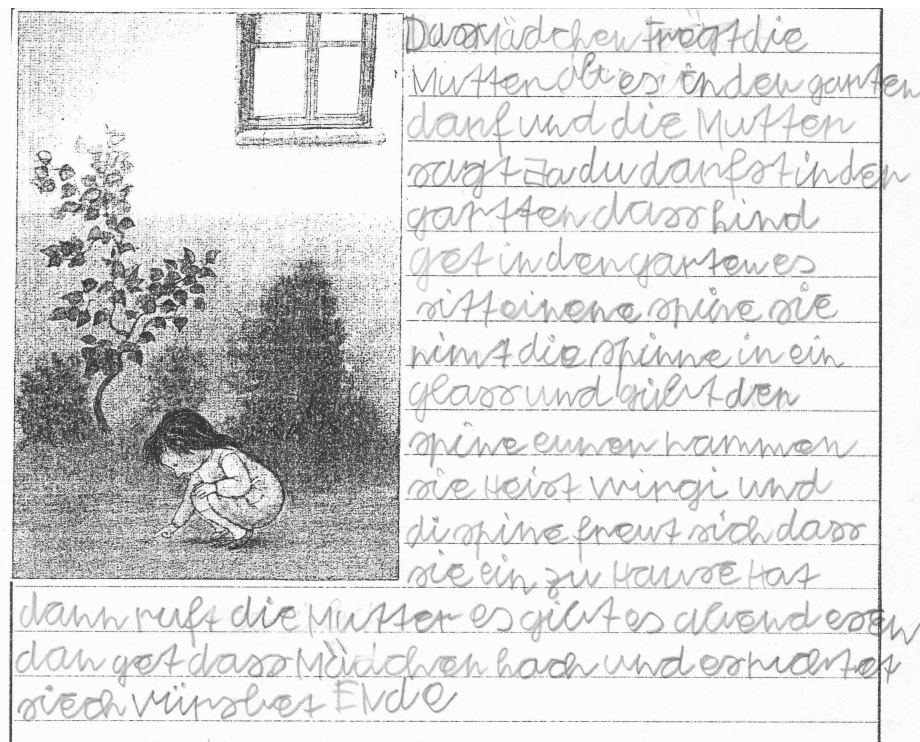 Dass Mädchen frägt die
Mutter obt es in den garten
darf und die Mutter
sagt Ja du darfst in den
gartten dass kind
get in den garten es
sitt einene spine sie
nimt die spinne in ein
glass und gibt der
spine einen nammen
sie Heist wingi und
di spine freut sich dass
sie ein zu Hause Hat
dann ruft die Mutter es gibt es abend esen
dan get dass Mädchen hoch und es
siech Ende